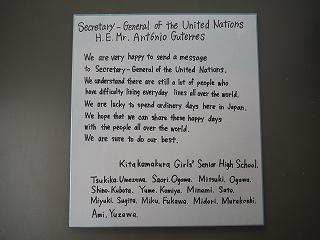 Secretary-General of the United Nations
H.E. Mr. António Guterres
We are very happy to send a message
to Secretary-General of the United Nations.
We understand there are still a lot of people who
have difficulty living everyday lives all over the world.
We are lucky to spend ordinary days here in Japan.
We hope that we can share these happy days
with the people all over the world.
We are sure to do our best.
Kitakamakura Girls' Senior High School.
Tsukika.Umezawa. Saori.Ogawa. Mitsuki.Ogawa.
Shino.Kubota. Yume.Komiya. Minami.Sato.
Miyuki.Sugita. Miku.Fukawa. Midori.Murakoshi.
Ami.Yuzawa.